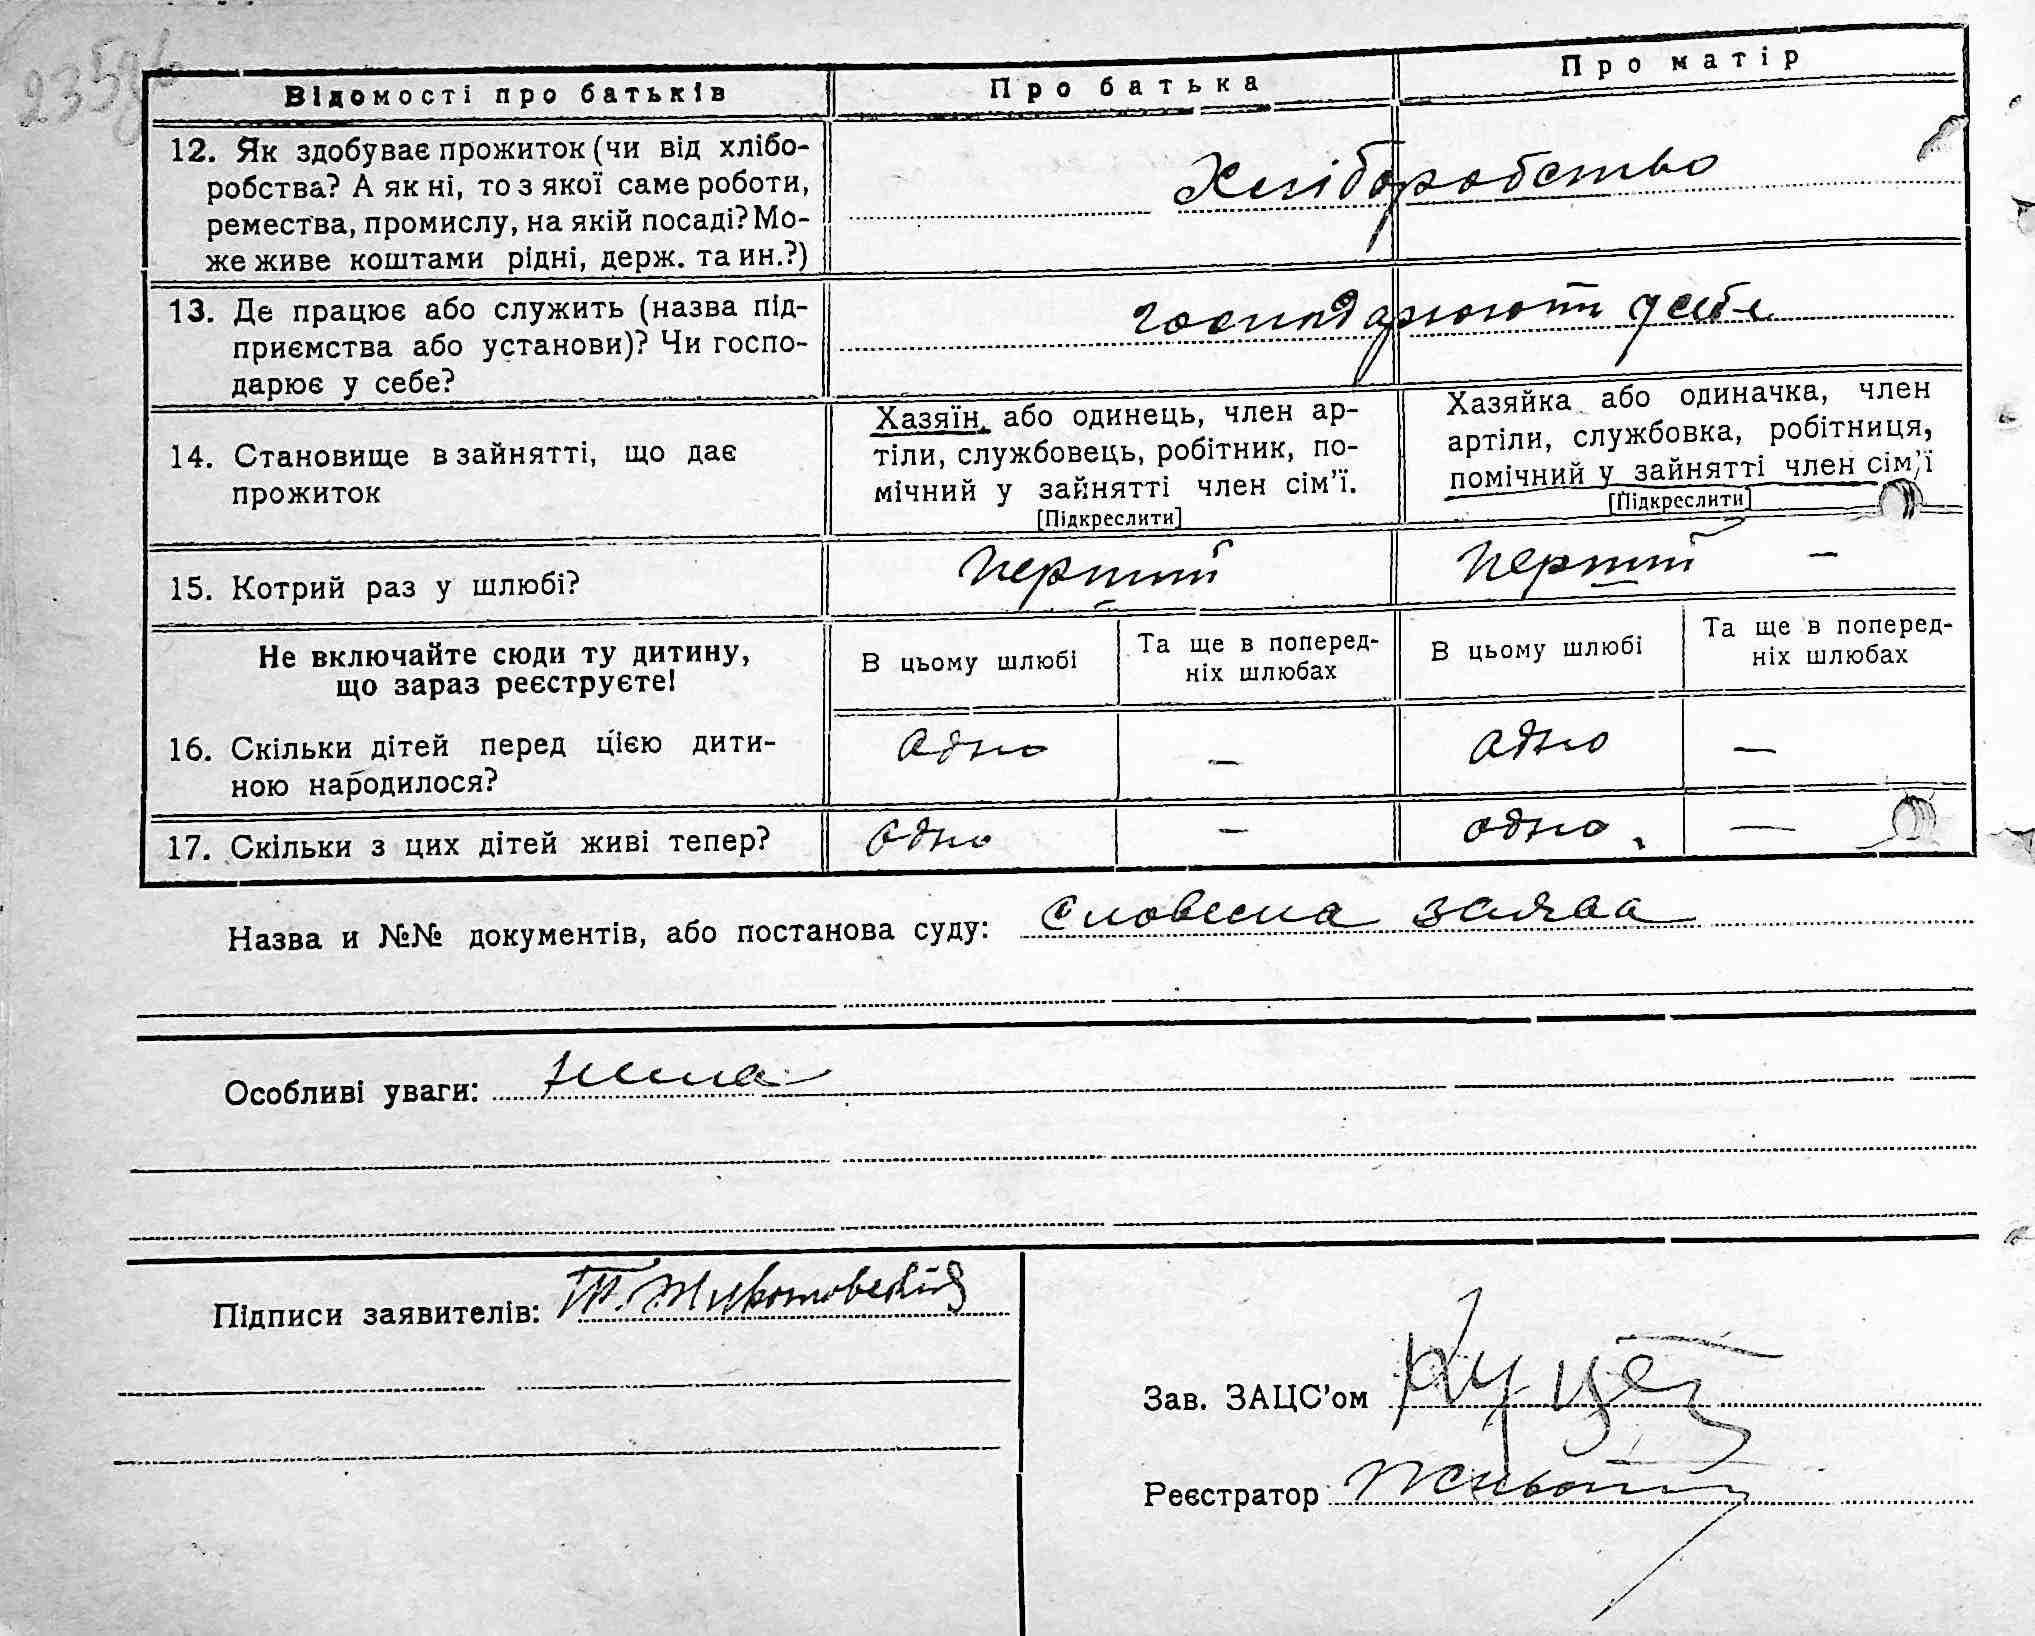 Відомості про батьків
Про батька
Про матір
12. Як здобуває прожиток (чи від хлібо-
робства? А як ні, то з якої саме роботи,
ремества, промислу, на якій посаді? Мо-
же живе коштами рідні, держ. та ин.?)
Хліборобство
13. Де працює або служить (назва під-
приємства або установи)? Чи госпо-
дарює у себе?
господарюють у себе
14. Становище в зайнятті, що дає
прожиток
Хазяїн, або одинець, член ар-
тіли, службовець, робітник, по-
мічний у зайнятті член сім'ї.
[Підкреслити]
Хазяйка або одиначка, член
артіли, службовка, робітниця,
помічний у зайнятті член сім'ї
[Підкреслити]
15. Котрий раз у шлюбі?
перший
перший —
Не включайте сюди ту дитину,
що зараз реєструєте!
В цьому шлюбі
Та ще в поперед-
ніх шлюбах
В цьому шлюбі
Та ще в поперед-
ніх шлюбах
16. Скільки дітей перед цією дити-
ною народилося?
одно
—
одно
—
17. Скільки з цих дітей живі тепер?
одно
—
одно
—
Назва и №№ документів, або постанова суду: словесна заява
Особливі уваги: нема
Підписи заявителів:
Зав. ЗАЦС'ом
Реєстратор